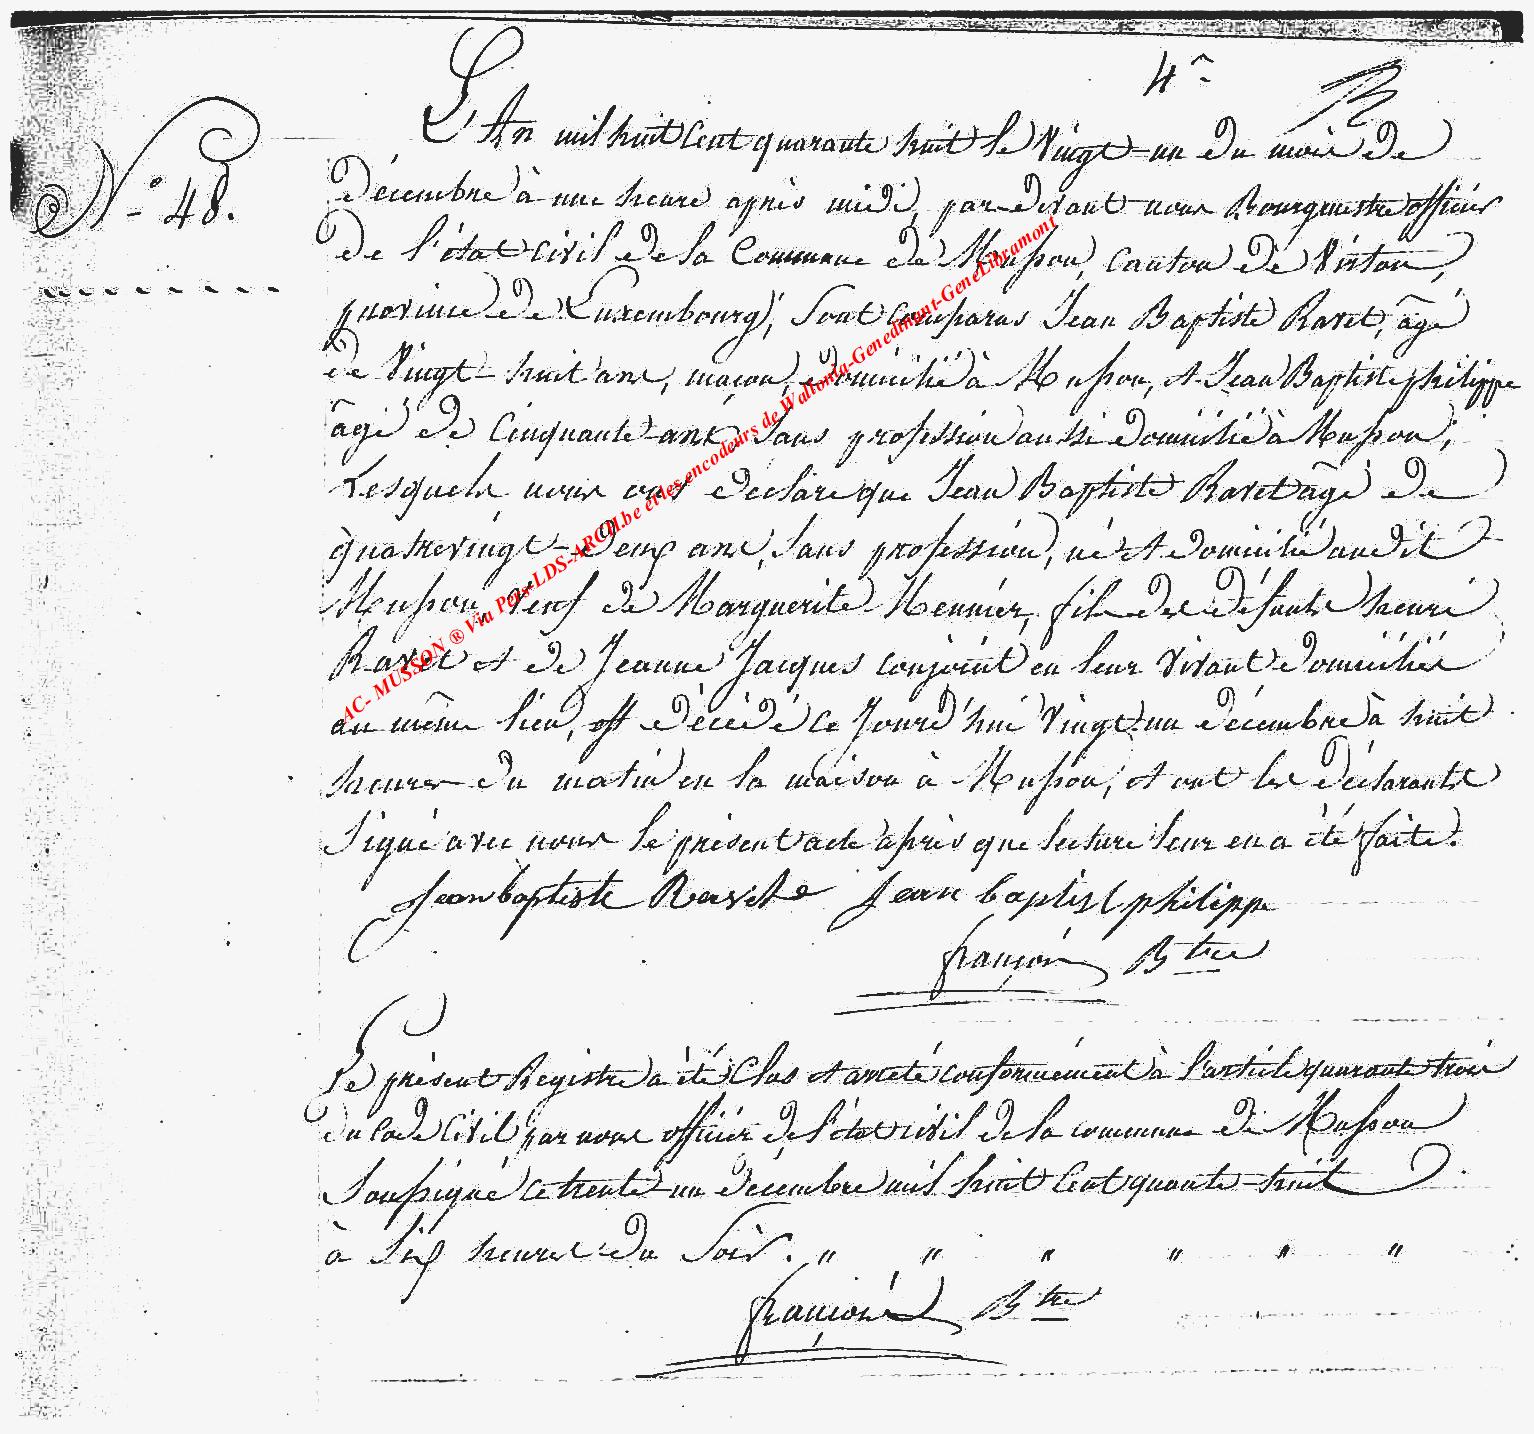 4e
N° 48.
L'An mil huit cent quarante huit le Vingt-un du mois de
Décembre à une heure après midi, par devant nous Bourgmestre officier
de l'état civil de la Commune de Musson, canton de Virton,
province de Luxembourg, sont comparus Jean Baptiste Ravet, âgé
de Vingt-huit ans, maçon, domicilié à Musson, et Jean Baptiste philippe
âgé de Cinquante ans, sans profession aussi domicilié à Musson;
Lesquels nous ont déclaré que Jean Baptiste Ravet âgé de
quatrevingt-deux ans, sans profession, né et domicilié audit
Musson, veuf de Marguerite Meunier, fils des défunts henri
Ravet et de Jeanne Jacques conjoint en leur vivant domiciliés
au même lieu, est décédé ce Jourd'hui Vingt-un décembre à huit
heures du matin en sa maison à Musson; et ont les déclarants
Signé avec nous le présent acte après que lecture leur en a été faite.
Jean baptiste Ravet Jean baptist philippe
françois Btre
Le présent Registre a été Clos et arreté conformément à l'article quarante trois
du Code Civil par nous officier de l'état civil de la commune de Musson
Soussigné ce trente-un décembre mil huit Cent quarante-huit
à Six heures du Soir. " " " " " "
françois Btre
AC- MUSSON ® Via Pers-LDS-ARCH.be et les encodeurs de Wallonia-Genedinant-GeneLibramont